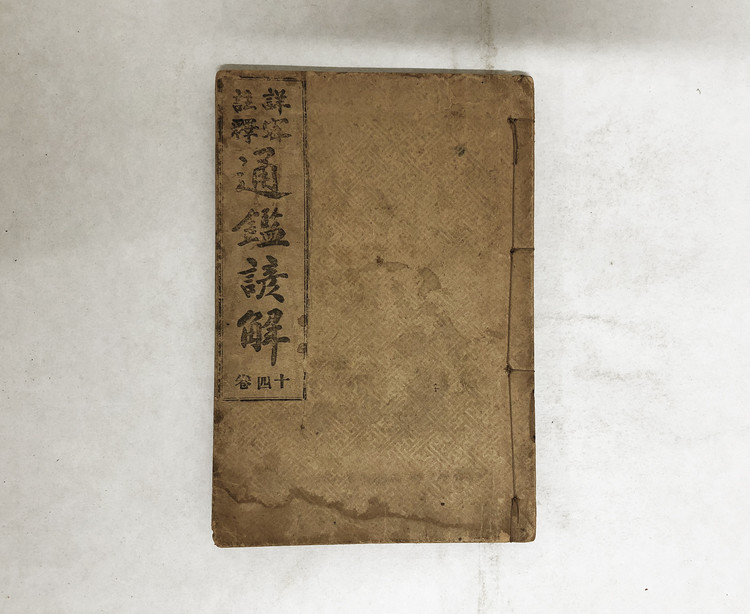 詳密
註釋
通鑑諺解
十四卷